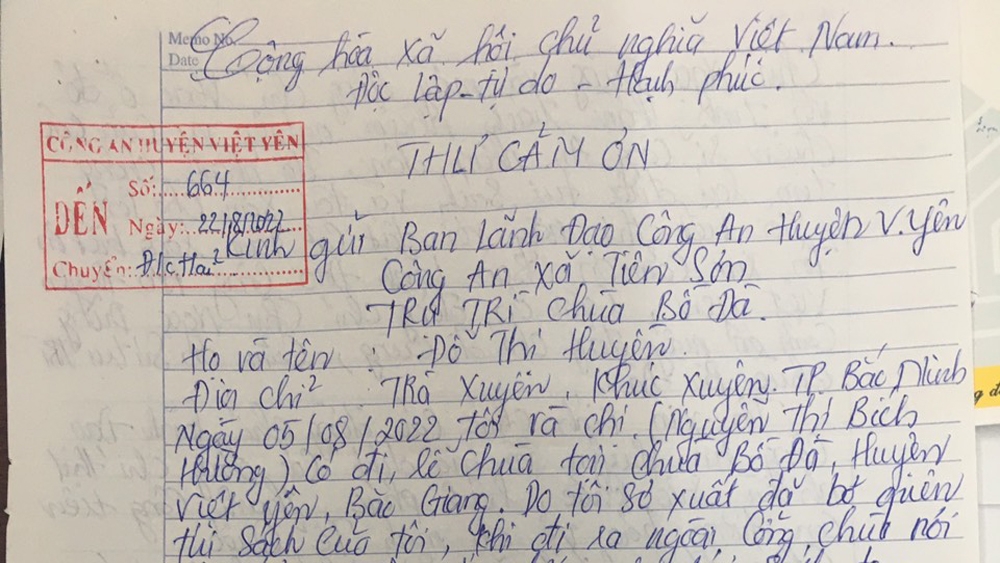 Memo No.
Date
Cộng hòa xã hội chủ nghĩa Việt Nam.
Độc lập - tự do - Hạnh phúc.
THƯ CẢM ƠN
CÔNG AN HUYỆN VIỆT YÊN
ĐẾN
Số: 664
Ngày: 22/8/2022
Chuyển: Đ/c Hai
Kính gửi Ban Lãnh Đạo Công An Huyện V. Yên
Công An Xã Tiên Sơn
TRỤ TRÌ Chùa Bổ Đà.
Họ và tên : Đỗ Thị Huyền.
Địa chỉ Trà Xuyên, Khúc Xuyên. TP Bắc Ninh
Ngày 05/08/2022 tôi và chị (Nguyễn Thị Bích
Hường) có đi lễ chùa tại chùa Bổ Đà, Huyện
Việt Yên, Bắc Giang. Do tôi sơ xuất đã bỏ quên
túi sách của tôi, khi đi ra ngoài cổng chùa nơi